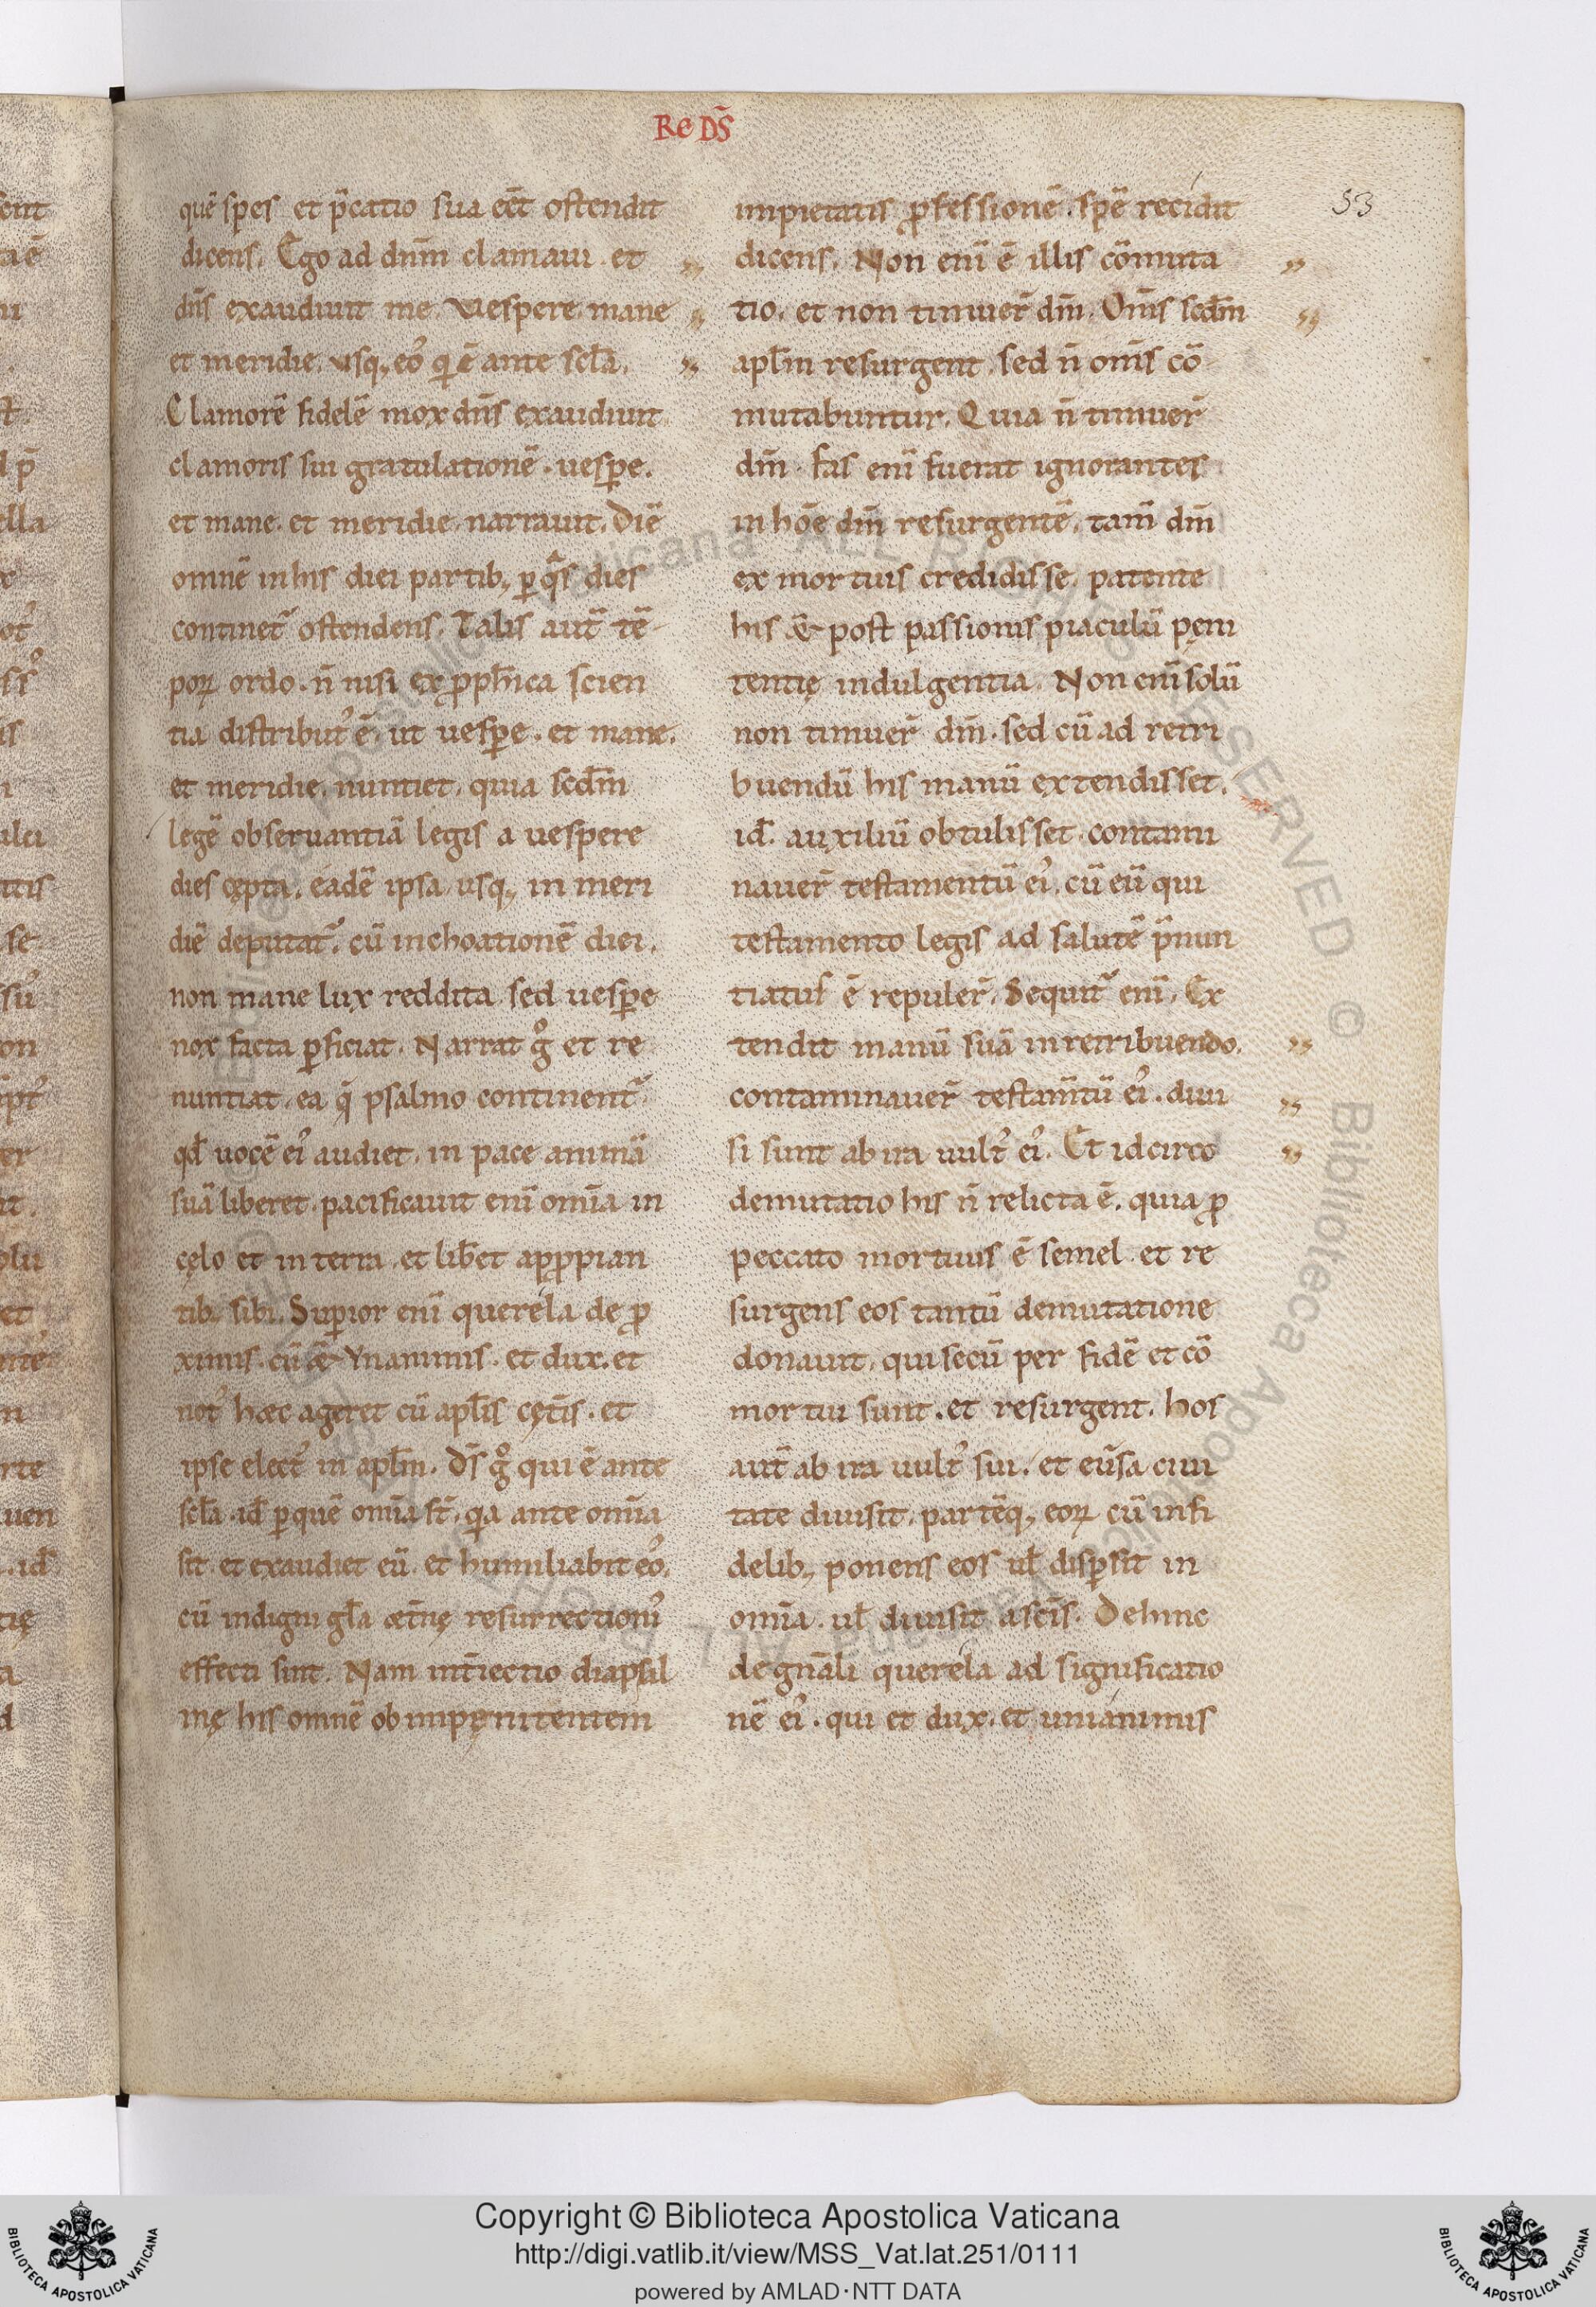 Re DS̄
53
quē spes et p̄catio sua eēt ostendit
dicens. Ego ad dn̄m clamaui et
dn̄s exaudiuit me. Vespere. mane
et meridie. usq; eo᾽ qi ē ante scl̄a.
Clamorē fidelē mox dn̄s exaudiuit
clamoris sui gratulationē. uesꝑe.
et mane. et meridie narrauit. Diē
omnē in his diei partib; ꝑ qa̅s dies
continet᷑ ostendens. Talis aut̄ tē
poꝝ ordo. n̄ nisi ex ꝓph̄ica scien
tia distribut᾽ ē. ut uesꝑe. et mane.
et meridie. nuntiet. quia scd̄m
legē obseruantiā legis a uespere
dies cępta. eadē ipsa usq; in meri
diē deputat᷑. cū inchoationē diei.
non mane lux reddita sed uesꝑe
nox facta ꝑficiat. Narrat gͦ et re
nuntiat ea q̄ psalmo continent᷑
qd̄ uocē ei᾽ audiet. in pace animā
suā liberet. pacificauit eni̅ om̄ia in
cęlo et in terra. et lib̄et apꝓpian
tib; sibi. Suꝑior eni̅ querela de ꝓ
ximis. cū & Ynanimis. et dux. et
not᾽ hæc ageret cū apl̄is cęt̄is. et
ipse elect᾽ in apl̄m. Ds̄ gͦ qui ē ante
scl̄a. id̄ ꝑ quē om̄ia st̄. qa ante om̄ia
sit. et exaudiet eū. et humiliabit eo᾽.
cū indigni gl̄a æt̄nę resurrectioni᾽
effecti sint. Nam int̄iectio diapsal
mę his omnē ob impęnitentem
impietatis ꝓfessionē. spē recidit
dicens. Non eni̅ ē illis cōmuta
tio. et non timuer̄ dm̄. Om̄s scd̄m
apl̄m resurgent. sed n̄ om̄s cō
mutabuntur. Quia n̄ timuer̄
dm̄. fas eni̅ fuerat ignorantes
in hōe dm̄ resurgentē. tam̄ dm̄
ex mortuis credidisse. patente
his & post passionis piaculū pęni
tentię indulgentia. Non eni̅ solū
non timuer̄ dm̄. sed cū ad retri
buendū his manū extendisset.
id̄. auxiliū obtulisset. contami
nauer̄ testamentū ei᾽. cū eū qui
testamento legis ad salutē p̄nun
tiatus ē repuler̄. Sequit᷑ eni̅. Ex
tendit manū suā in retribuendo.
contaminauer̄ testam̄tū ei᾽. diui
si sunt ab ira uult᾽ ei᾽. Et idcirco
demutatio his n̄ relicta ē. quia ꝓ
peccato mortuus ē semel et re
surgens eos tantū demutatione
donauit. qui secū per fidē et cō
mortui sunt. et resurgent. hos
aut̄ ab ira uult᾽ sui. et eūsa ciui
tate diuisit. partēq; eoꝝ cū infi
delib; ponens eos ul̄ disꝑsit in
om̄ia. ul̄ diuisit a scīs. Dehinc
de gn̄ali querela ad significatio
nē ei᾽. qui et dux. et unianimis
Copyright © Biblioteca Apostolica Vaticana
http://digi.vatlib.it/view/MSS_Vat.lat.251/0111
powered by AMLAD·NTT DATA